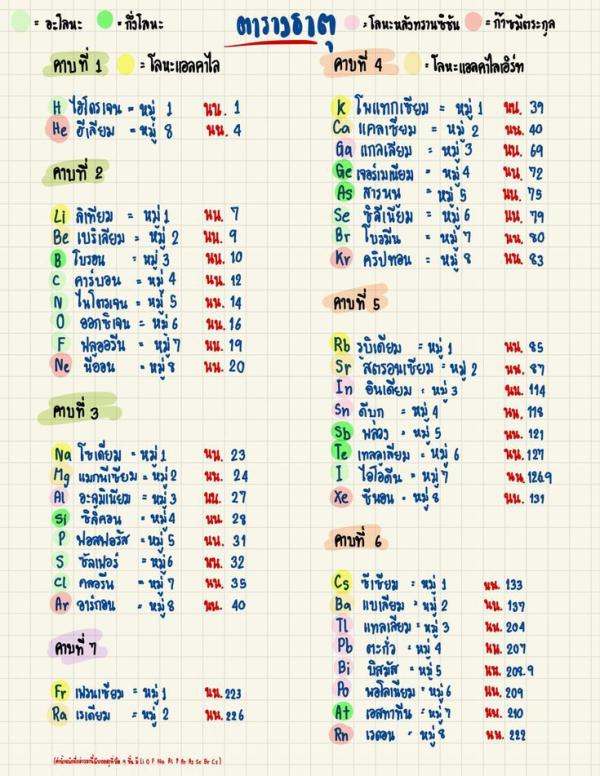 = อะโลหะ = กึ่งโลหะ ตารางธาตุ = โลหะหลังทรานซิชัน = ก๊าซมีตระกูล
คาบที่ 1 = โลหะแอลคาไล
H ไฮโดรเจน = หมู่ 1 นน. 1
He ฮีเลียม = หมู่ 8 นน. 4
คาบที่ 2
Li ลิเทียม = หมู่ 1 นน. 7
Be เบริเลียม = หมู่ 2 นน. 9
B โบรอน = หมู่ 3 นน. 10
C คาร์บอน = หมู่ 4 นน. 12
N ไนโตรเจน = หมู่ 5 นน. 14
O ออกซิเจน = หมู่ 6 นน. 16
F ฟลูออรีน = หมู่ 7 นน. 19
Ne นีออน = หมู่ 8 นน. 20
คาบที่ 3
Na โซเดียม = หมู่ 1 นน. 23
Mg แมกนีเซียม = หมู่ 2 นน. 24
Al อะลูมิเนียม = หมู่ 3 นน. 27
Si ซิลิคอน = หมู่ 4 นน. 28
P ฟอสฟอรัส = หมู่ 5 นน. 31
S ซัลเฟอร์ = หมู่ 6 นน. 32
Cl คลอรีน = หมู่ 7 นน. 35
Ar อาร์กอน = หมู่ 8 นน. 40
คาบที่ 7
Fr แฟรนเซียม = หมู่ 1 นน. 223
Ra เรเดียม = หมู่ 2 นน. 226
คาบที่ 4 = โลหะแอลคาไลเอิร์ท
K โพแทกเซียม = หมู่ 1 นน. 39
Ca แคลเซียม = หมู่ 2 นน. 40
Ga แกลเลียม = หมู่ 3 นน. 69
Ge เจอร์เมเนียม = หมู่ 4 นน. 72
As สารหนู = หมู่ 5 นน. 75
Se ซิลีเนียม = หมู่ 6 นน. 79
Br โบรมีน = หมู่ 7 นน. 80
Kr คริปทอน = หมู่ 8 นน. 83
คาบที่ 5
Rb รูบิเดียม = หมู่ 1 นน. 85
Sr สตรอนเซียม = หมู่ 2 นน. 87
In อินเดียม = หมู่ 3 นน. 114
Sn ดีบุก = หมู่ 4 นน. 118
Sb พลวง = หมู่ 5 นน. 121
Te เทลลูเลียม = หมู่ 6 นน. 127
I ไอโอดีน = หมู่ 7 นน. 126.9
Xe ซีนอน = หมู่ 8 นน. 131
คาบที่ 6
Cs ซีเซียม = หมู่ 1 นน. 133
Ba แบเลียม = หมู่ 2 นน. 137
Tl แทลเลียม = หมู่ 3 นน. 204
Pb ตะกั่ว = หมู่ 4 นน. 207
Bi บิสมัส = หมู่ 5 นน. 208.9
Po พอโลเนียม = หมู่ 6 นน. 209
At เอสทาทีน = หมู่ 7 นน. 210
Rn เรดอน = หมู่ 8 นน. 222